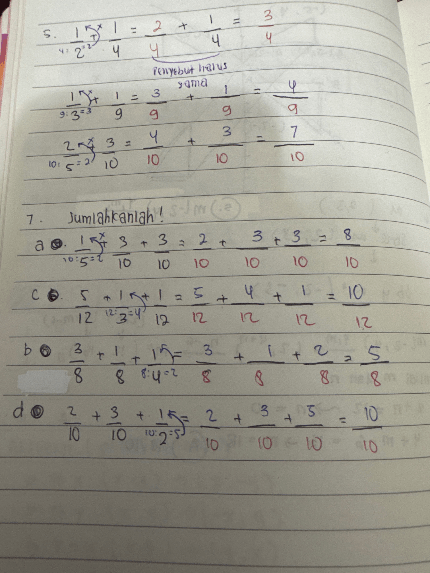 5. 1/2 + 1/4 = 2/4 + 1/4 = 3/4
4:2=2 x
Penyebut harus
sama
1/3 + 1/9 = 3/9 + 1/9 = 4/9
9:3=3 x
2/5 + 3/10 = 4/10 + 3/10 = 7/10
10:5=2 x
7. Jumlahkanlah!
a. 1/5 + 3/10 + 3/10 = 2/10 + 3/10 + 3/10 = 8/10
10:5=2 x
c. 5/12 + 1/3 + 1/12 = 5/12 + 4/12 + 1/12 = 10/12
12:3=4
b 3/8 + 1/8 + 1/4 = 3/8 + 1/8 + 2/8 = 5/8
8:4=2
d 2/10 + 3/10 + 1/2 = 2/10 + 3/10 + 5/10 = 10/10
10:2=5